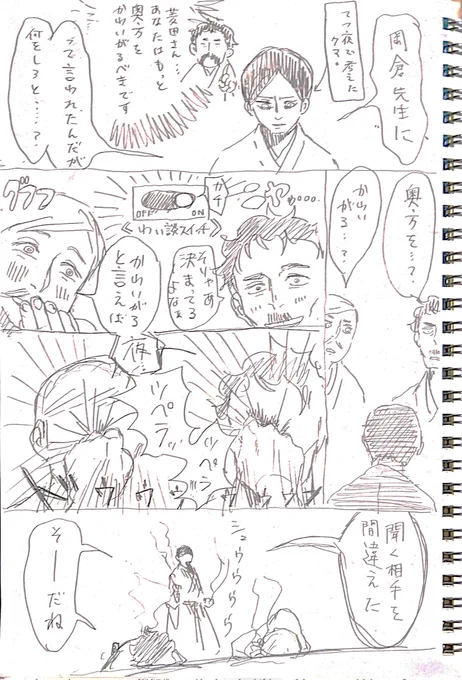 岡倉先生に
てつ夜で考えた
クマ
菱田さん…
あなたはもっと
奥方を
かわいがるべきです
って言われたんだが
何をしろと……?
奥方を…?
かわい
がる…?
ニヤ…
カチ
OFF
ON
《わい談スイッチ》
そりゃあ
決まってる
よなぁ
かわいがる
と言えば
グフフ
夜
ッペラッ
ッペラ
聞く相手を
間違えた
シュウゥゥゥ
そーだね